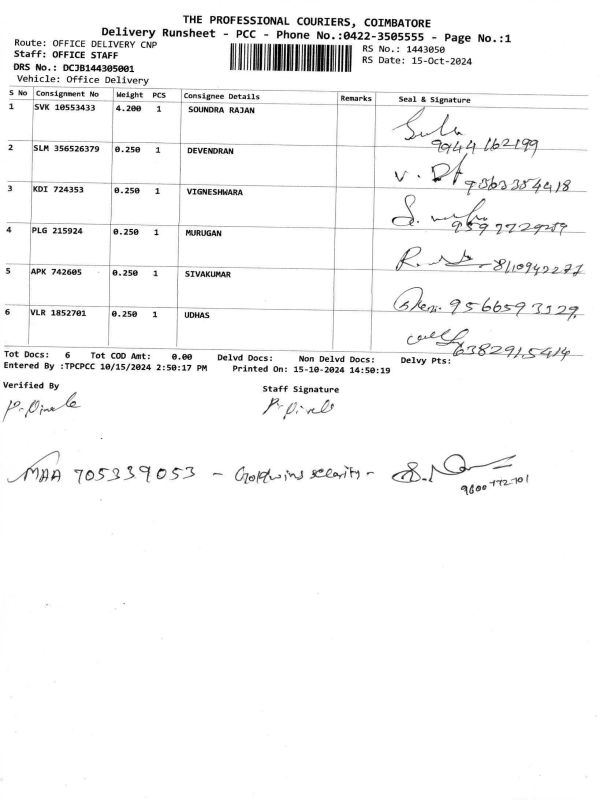 THE PROFESSIONAL COURIERS, COIMBATORE
Delivery Runsheet - PCC - Phone No.:0422-3505555 - Page No.:1
Route: OFFICE DELIVERY CNP
RS No.: 1443050
Staff: OFFICE STAFF
RS Date: 15-Oct-2024
DRS No.: DCJB144305001
Vehicle: Office Delivery
S No Consignment No Weight PCS Consignee Details Remarks Seal & Signature
1 SVK 10553433 4.200 1 SOUNDRA RAJAN
9944162199
2 SLM 356526379 0.250 1 DEVENDRAN
9363354418
3 KDI 724353 0.250 1 VIGNESHWARA
4 PLG 215924 0.250 1 MURUGAN
8110942277
5 APK 742605 0.250 1 SIVAKUMAR
9566593329
6 VLR 1852701 0.250 1 UDHAS
6382915414
Tot Docs: 6 Tot COD Amt: 0.00 Delvd Docs: Non Delvd Docs: Delvy Pts:
Entered By :TPCPCC 10/15/2024 2:50:17 PM Printed On: 15-10-2024 14:50:19
Verified By Staff Signature
MAA 705339053 - Goldwins security -
9600772701